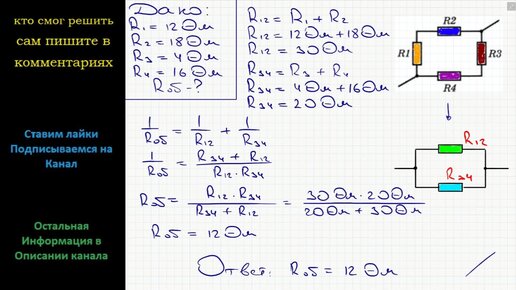 кто смог решить
сам пишите в
комментариях
Ставим лайки
Подписываемся на
Канал
Остальная
Информация в
Описании канала
Дано:
R₁ = 12 Ом
R₂ = 18 Ом
R₃ = 4 Ом
R₄ = 16 Ом
Rоб - ?
R₁₂ = R₁ + R₂
R₁₂ = 12 Ом + 18 Ом
R₁₂ = 30 Ом
R₃₄ = R₃ + R₄
R₃₄ = 4 Ом + 16 Ом
R₃₄ = 20 Ом
R2
R1
R3
R4
1/Rоб = 1/R₁₂ + 1/R₃₄
1/Rоб = (R₃₄ + R₁₂)/(R₁₂ · R₃₄)
Rоб = (R₁₂ · R₃₄)/(R₃₄ + R₁₂) = (30 Ом · 20 Ом)/(20 Ом + 30 Ом)
Rоб = 12 Ом
Ответ: Rоб = 12 Ом
R₁₂
R₃₄